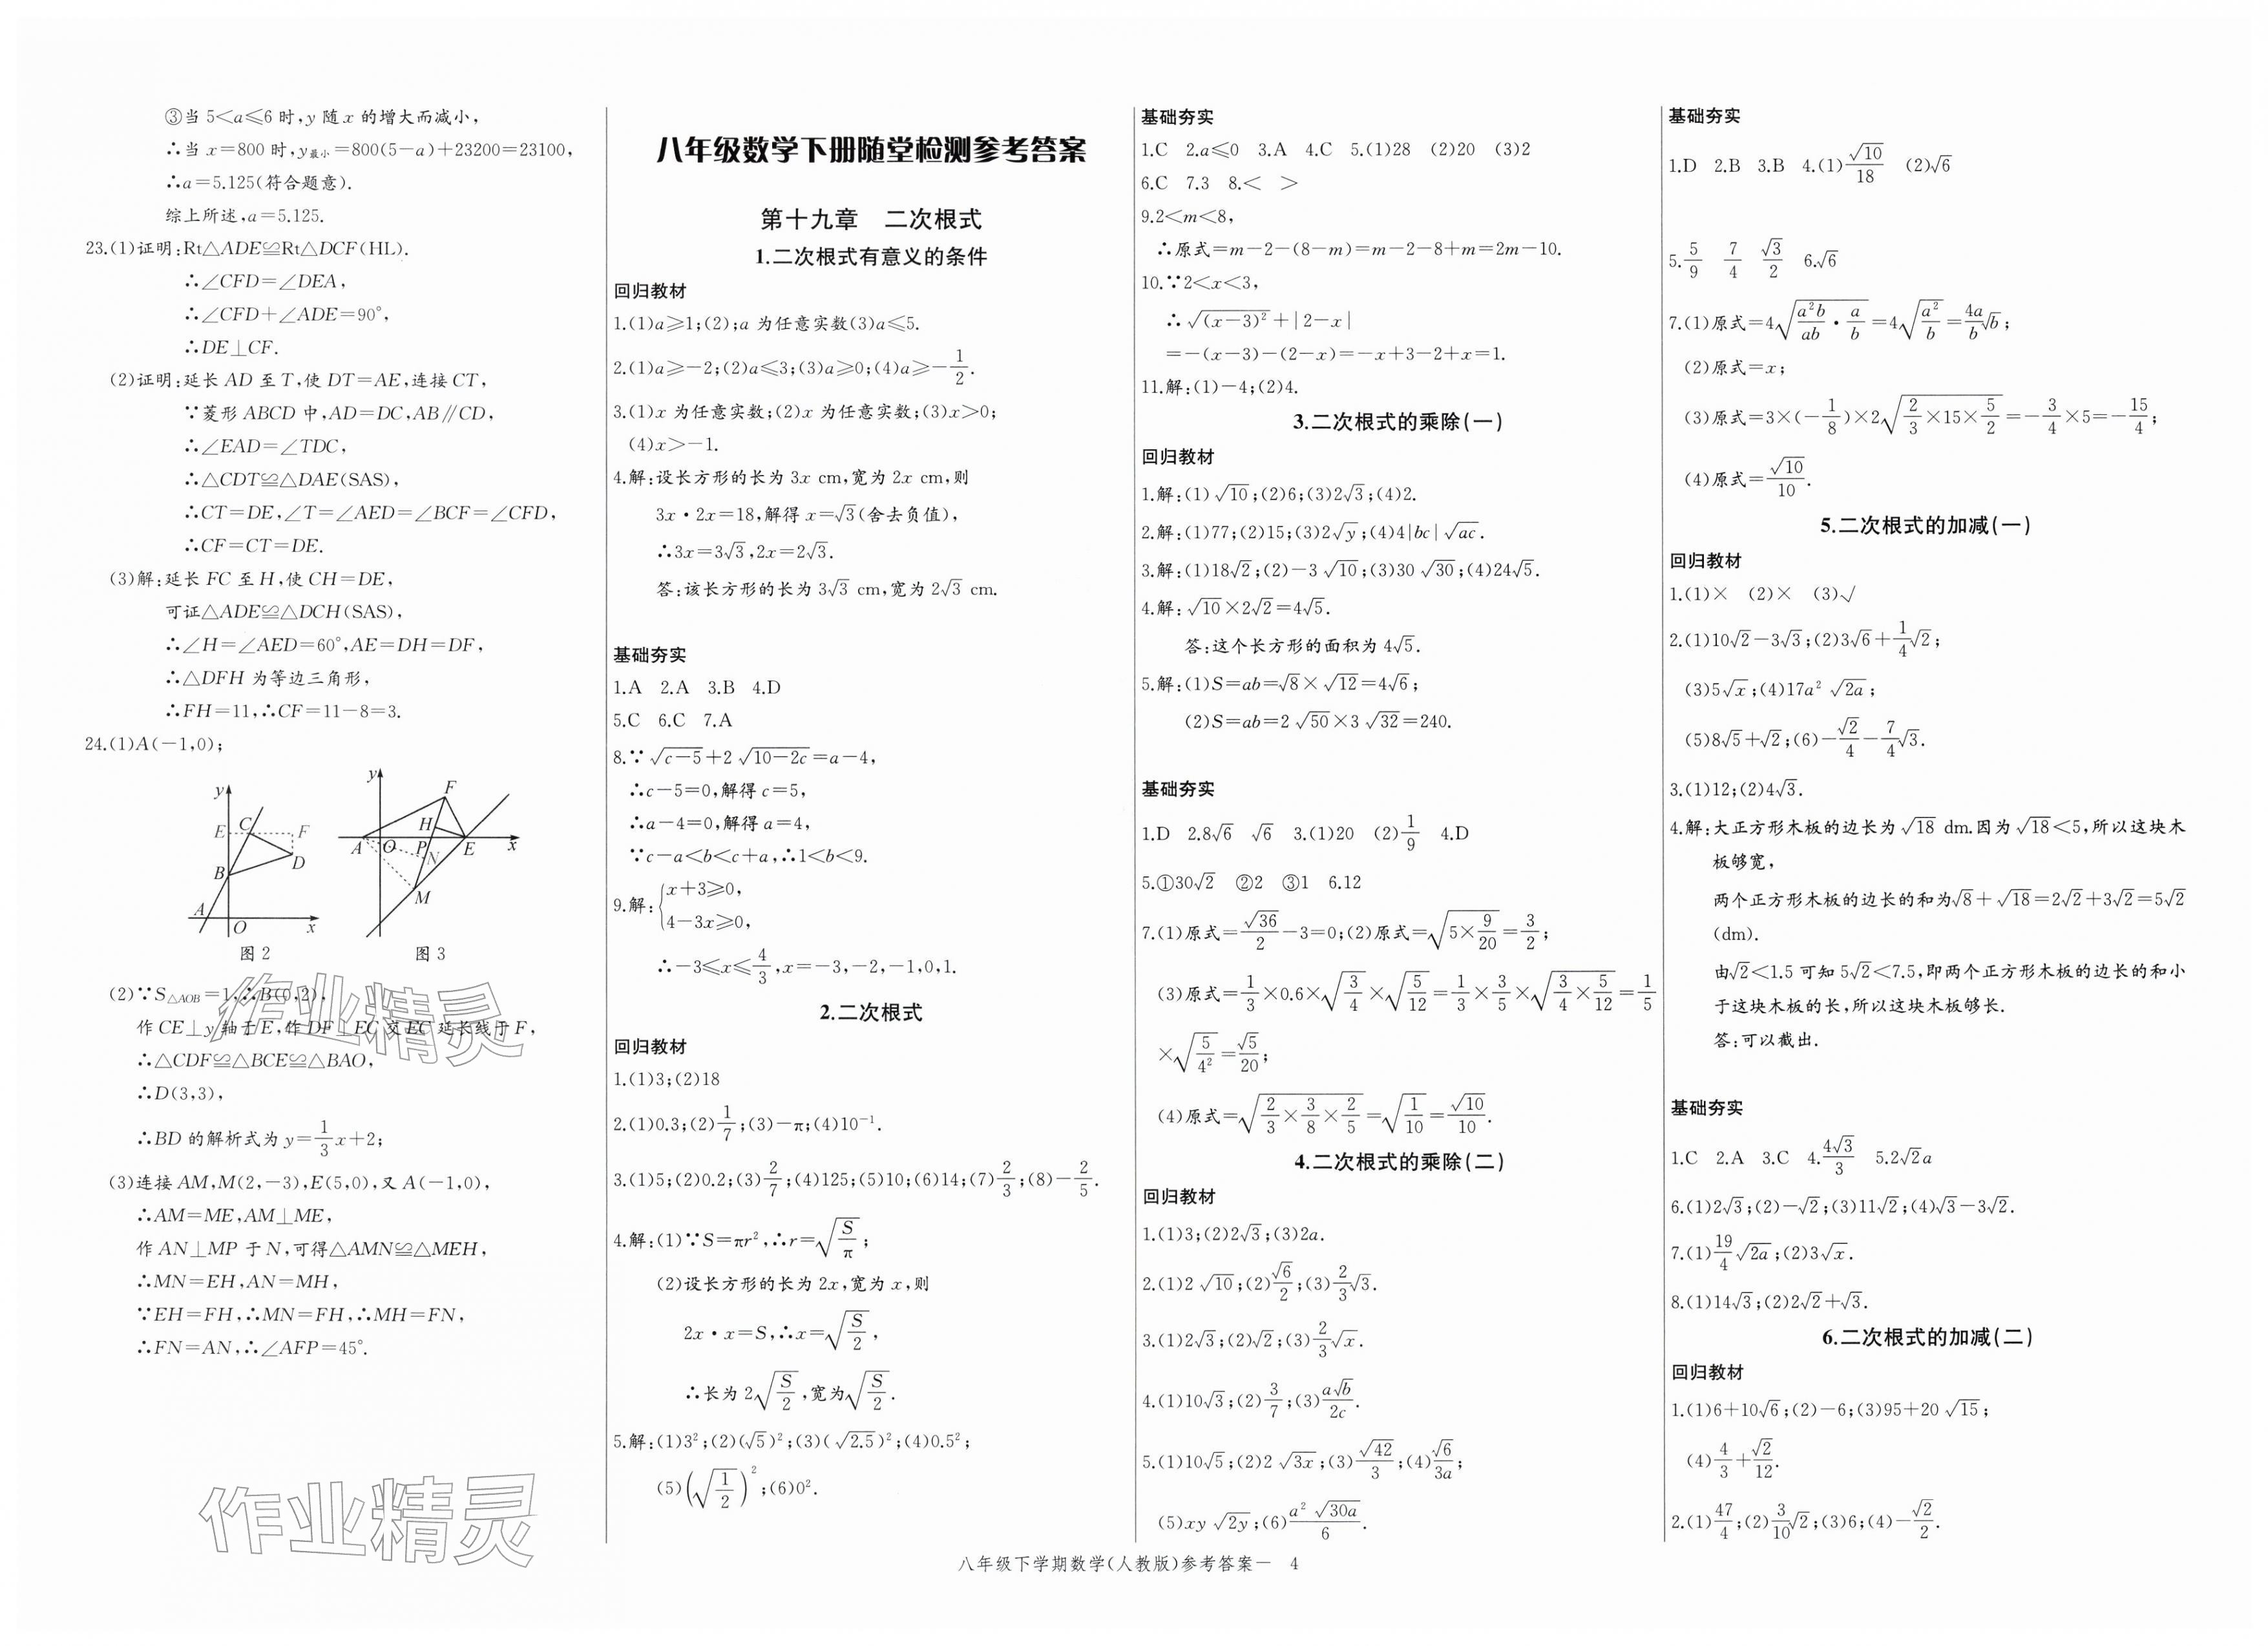 ③当 5<a⩽6 时,y 随 x 的增大而减小,
∴当 x=800 时,y最小=800(5-a)+23200=23100,
∴a=5.125(符合题意).
综上所述,a=5.125.
23.(1)证明:Rt△ADE≌Rt△DCF(HL).
∴∠CFD=∠DEA,
∴∠CFD+∠ADE=90°,
∴DE⊥CF.
(2)证明:延长 AD 至 T,使 DT=AE,连接 CT,
∵菱形 ABCD 中,AD=DC,AB∥CD,
∴∠EAD=∠TDC,
∴△CDT≌△DAE(SAS),
∴CT=DE,∠T=∠AED=∠BCF=∠CFD,
∴CF=CT=DE.
(3)解:延长 FC 至 H,使 CH=DE,
可证△ADE≌△DCH(SAS),
∴∠H=∠AED=60°,AE=DH=DF,
∴△DFH 为等边三角形,
∴FH=11,∴CF=11-8=3.
24.(1)A(-1,0);
y E C F D B A O x
图 2
y F H A O P N E x M
图 3
(2)∵S△AOB=1,∴B(0,2),
作 CE⊥y 轴于 E,作 DF⊥EC 交 EC 延长线于 F,
∴△CDF≌△BCE≌△BAO,
∴D(3,3),
∴BD 的解析式为 y=1/3x+2;
(3)连接 AM,M(2,-3),E(5,0),又 A(-1,0),
∴AM=ME,AM⊥ME,
作 AN⊥MP 于 N,可得△AMN≌△MEH,
∴MN=EH,AN=MH,
∵EH=FH,∴MN=FH,∴MH=FN,
∴FN=AN,∴∠AFP=45°.
作业精灵
作业精灵
八年级数学下册随堂检测参考答案
第十九章 二次根式
1.二次根式有意义的条件
回归教材
1.(1)a⩾1;(2);a 为任意实数(3)a⩽5.
2.(1)a⩾-2;(2)a⩽3;(3)a⩾0;(4)a⩾-1/2.
3.(1)x 为任意实数;(2)x 为任意实数;(3)x>0;
(4)x>-1.
4.解:设长方形的长为 3x cm,宽为 2x cm,则
3x·2x=18,解得 x=√3(舍去负值),
∴3x=3√3,2x=2√3.
答:该长方形的长为 3√3 cm,宽为 2√3 cm.
基础夯实
1.A 2.A 3.B 4.D
5.C 6.C 7.A
8.∵√(c-5)+2√(10-2c)=a-4,
∴c-5=0,解得 c=5,
∴a-4=0,解得 a=4,
∵c-a<b<c+a,∴1<b<9.
9.解:{x+3⩾0,
4-3x⩾0,
∴-3⩽x⩽4/3,x=-3,-2,-1,0,1.
2.二次根式
回归教材
1.(1)3;(2)18
2.(1)0.3;(2)1/7;(3)-π;(4)10⁻¹.
3.(1)5;(2)0.2;(3)2/7;(4)125;(5)10;(6)14;(7)2/3;(8)-2/5.
4.解:(1)∵S=πr²,∴r=√(S/π);
(2)设长方形的长为 2x,宽为 x,则
2x·x=S,∴x=√(S/2),
∴长为 2√(S/2),宽为√(S/2).
5.解:(1)3²;(2)(√5)²;(3)(√2.5)²;(4)0.5²;
(5)(√(1/2))²;(6)0².
基础夯实
1.C 2.a⩽0 3.A 4.C 5.(1)28 (2)20 (3)2
6.C 7.3 8.< >
9.2<m<8,
∴原式=m-2-(8-m)=m-2-8+m=2m-10.
10.∵2<x<3,
∴√((x-3)²)+|2-x|
=-(x-3)-(2-x)=-x+3-2+x=1.
11.解:(1)-4;(2)4.
3.二次根式的乘除(一)
回归教材
1.解:(1)√10;(2)6;(3)2√3;(4)2.
2.解:(1)77;(2)15;(3)2√y;(4)4|bc|√ac.
3.解:(1)18√2;(2)-3√10;(3)30√30;(4)24√5.
4.解:√10×2√2=4√5.
答:这个长方形的面积为 4√5.
5.解:(1)S=ab=√8×√12=4√6;
(2)S=ab=2√50×3√32=240.
基础夯实
1.D 2.8√6 √6 3.(1)20 (2)1/9 4.D
5.①30√2 ②2 ③1 6.12
7.(1)原式=√36/2-3=0;(2)原式=√(5×9/20)=3/2;
(3)原式=1/3×0.6×√(3/4)×√(5/12)=1/3×3/5×√(3/4×5/12)=1/5
×√(5/4²)=√5/20;
(4)原式=√(2/3×3/8×2/5)=√(1/10)=√10/10.
4.二次根式的乘除(二)
回归教材
1.(1)3;(2)2√3;(3)2a.
2.(1)2√10;(2)√6/2;(3)2/3√3.
3.(1)2√3;(2)√2;(3)2/3√x.
4.(1)10√3;(2)3/7;(3)a√b/2c.
5.(1)10√5;(2)2√3x;(3)√42/3;(4)√6/3a;
(5)xy√2y;(6)a²√30a/6.
基础夯实
1.D 2.B 3.B 4.(1)√10/18 (2)√6
5.5/9 7/4 √3/2 6.√6
7.(1)原式=4√(a²b/ab·a/b)=4√(a²/b)=4a/b√b;
(2)原式=x;
(3)原式=3×(-1/8)×2√(2/3×15×5/2)=-3/4×5=-15/4;
(4)原式=√10/10.
5.二次根式的加减(一)
回归教材
1.(1)× (2)× (3)√
2.(1)10√2-3√3;(2)3√6+1/4√2;
(3)5√x;(4)17a²√2a;
(5)8√5+√2;(6)-√2/4-7/4√3.
3.(1)12;(2)4√3.
4.解:大正方形木板的边长为√18 dm.因为√18<5,所以这块木
板够宽,
两个正方形木板的边长的和为√8+√18=2√2+3√2=5√2
(dm).
由√2<1.5 可知 5√2<7.5,即两个正方形木板的边长的和小
于这块木板的长,所以这块木板够长.
答:可以截出.
基础夯实
1.C 2.A 3.C 4.4√3/3 5.2√2a
6.(1)2√3;(2)-√2;(3)11√2;(4)√3-3√2.
7.(1)19/4√2a;(2)3√x.
8.(1)14√3;(2)2√2+√3.
6.二次根式的加减(二)
回归教材
1.(1)6+10√6;(2)-6;(3)95+20√15;
(4)4/3+√2/12.
2.(1)47/4;(2)3/10√2;(3)6;(4)-√2/2.
八年级下学期数学(人教版)参考答案— 4